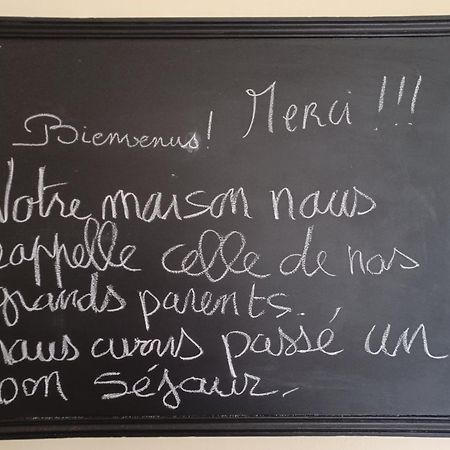 Bienvenus! Merci !!!
Votre maison nous
rappelle celle de nos
grands parents.
nous avons passé un
bon séjour.